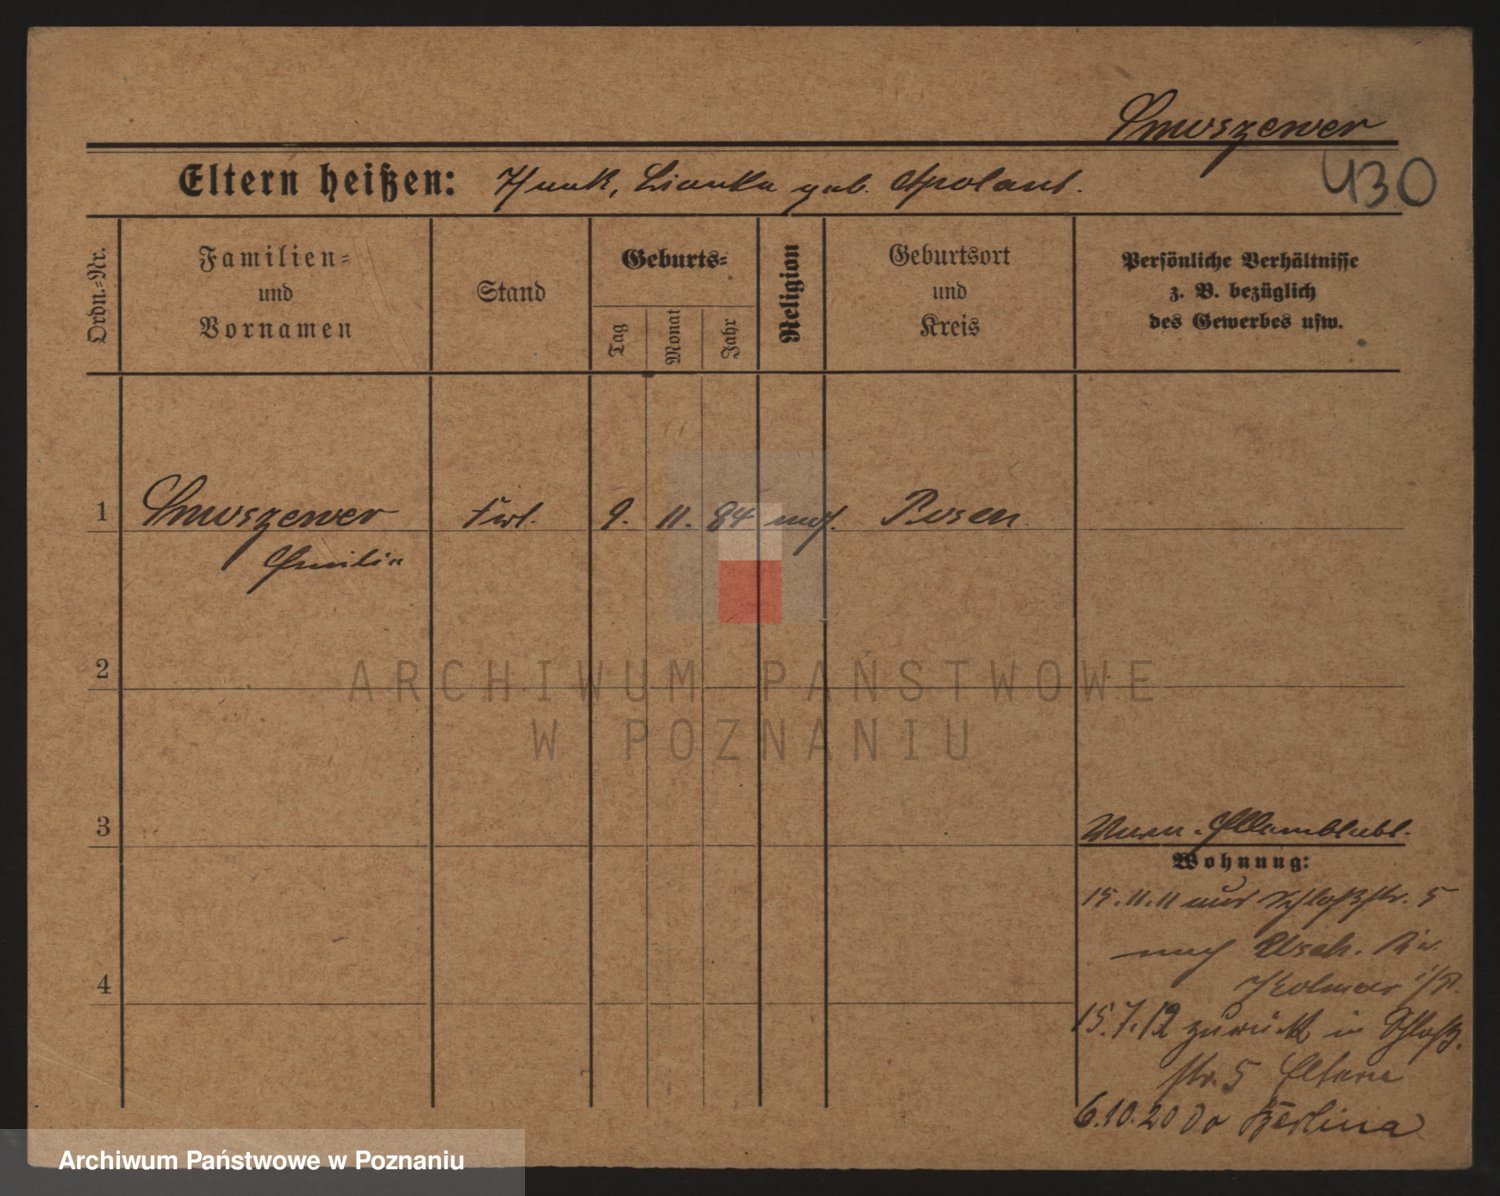 Smoszewer
430
Eltern heißen: Isaak, Bianka geb. Apolant.
Ordn.-Nr.
Familien- und Vornamen
Stand
Geburts-
Tag
Monat
Jahr
Religion
Geburtsort und Kreis
Persönliche Verhältnisse z. B. bezüglich des Gewerbes usw.
1 Smoszewer Frl. 9. 11. 84 mos. Posen
Emilie
2
3
Wohnung:
15.11.11 aus Schloßstr. 5
nach Usch. Kr.
Kolmar i/P.
4
15.7.12 zurück in Schloß-
str. 5 Eltern
6.10.20 do Berlina
ARCHIWUM PAŃSTWOWE
W POZNANIU
Archiwum Państwowe w Poznaniu